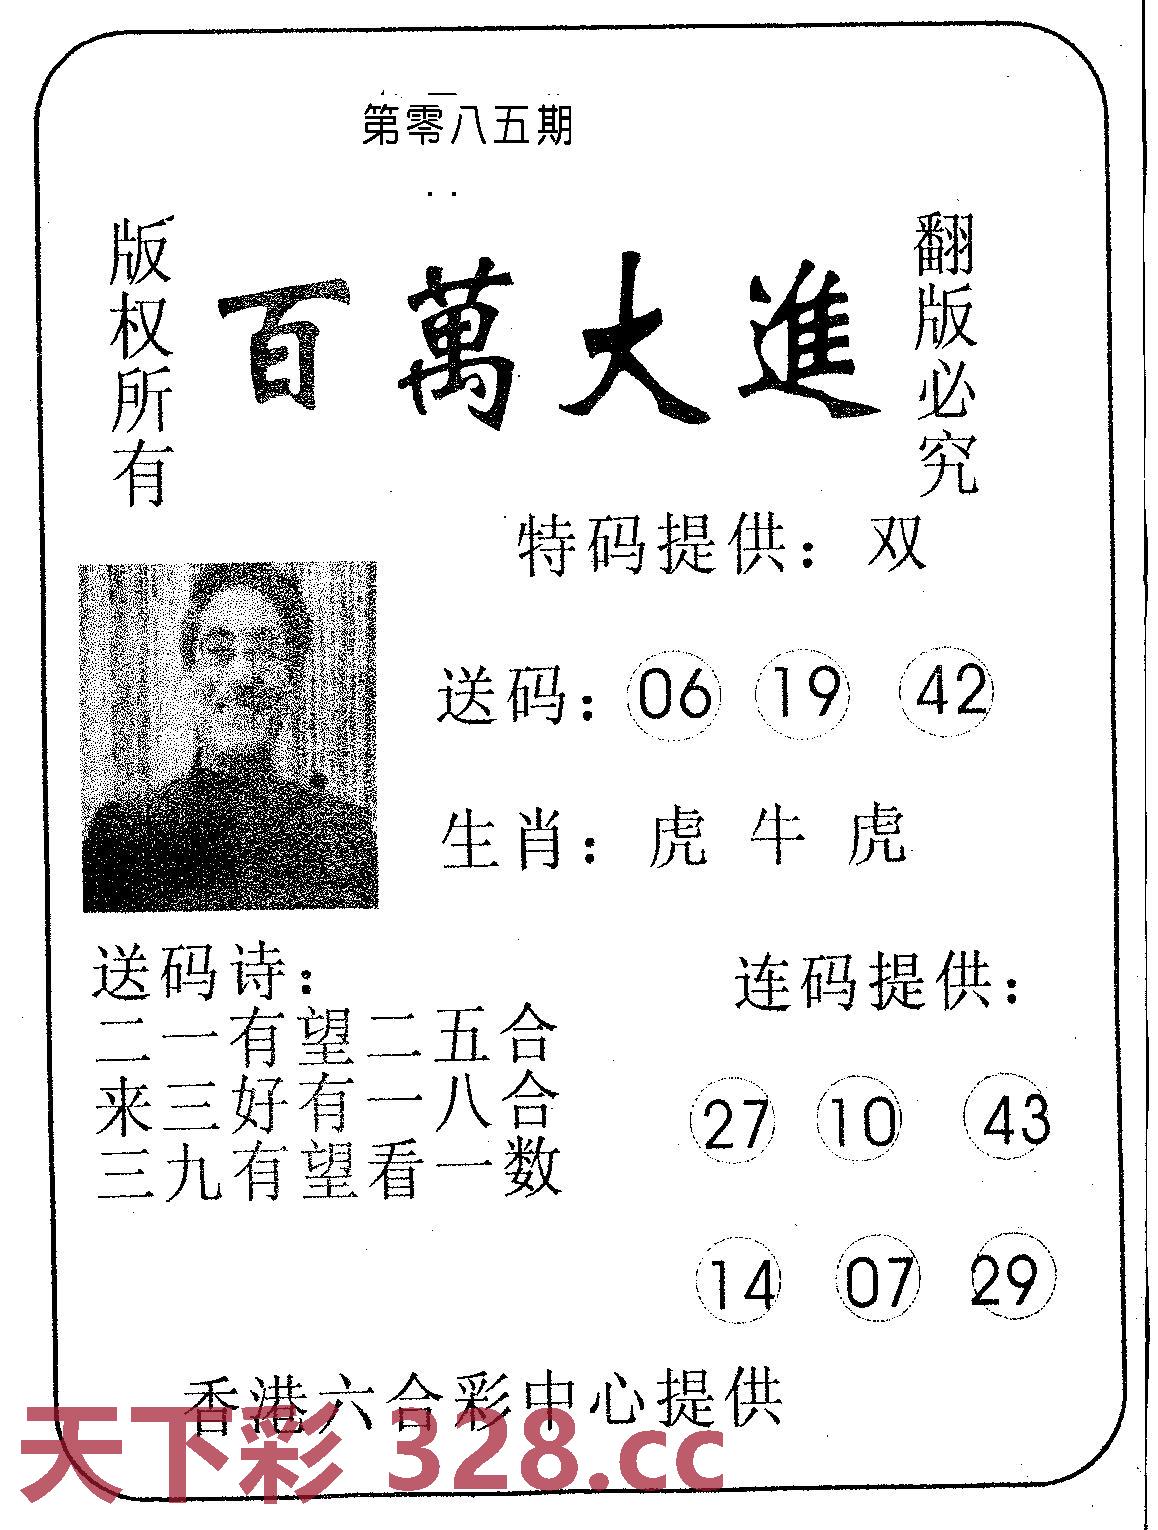 第零八五期
版权所有
百萬大進
翻版必究
特码提供：双
送码：06 19 42
生肖：虎 牛 虎
送码诗：
二一有望二五合
来三好有一八合
三九有望看一数
连码提供：
27 10 43
14 07 29
香港六合彩中心提供
天下彩 328.cc